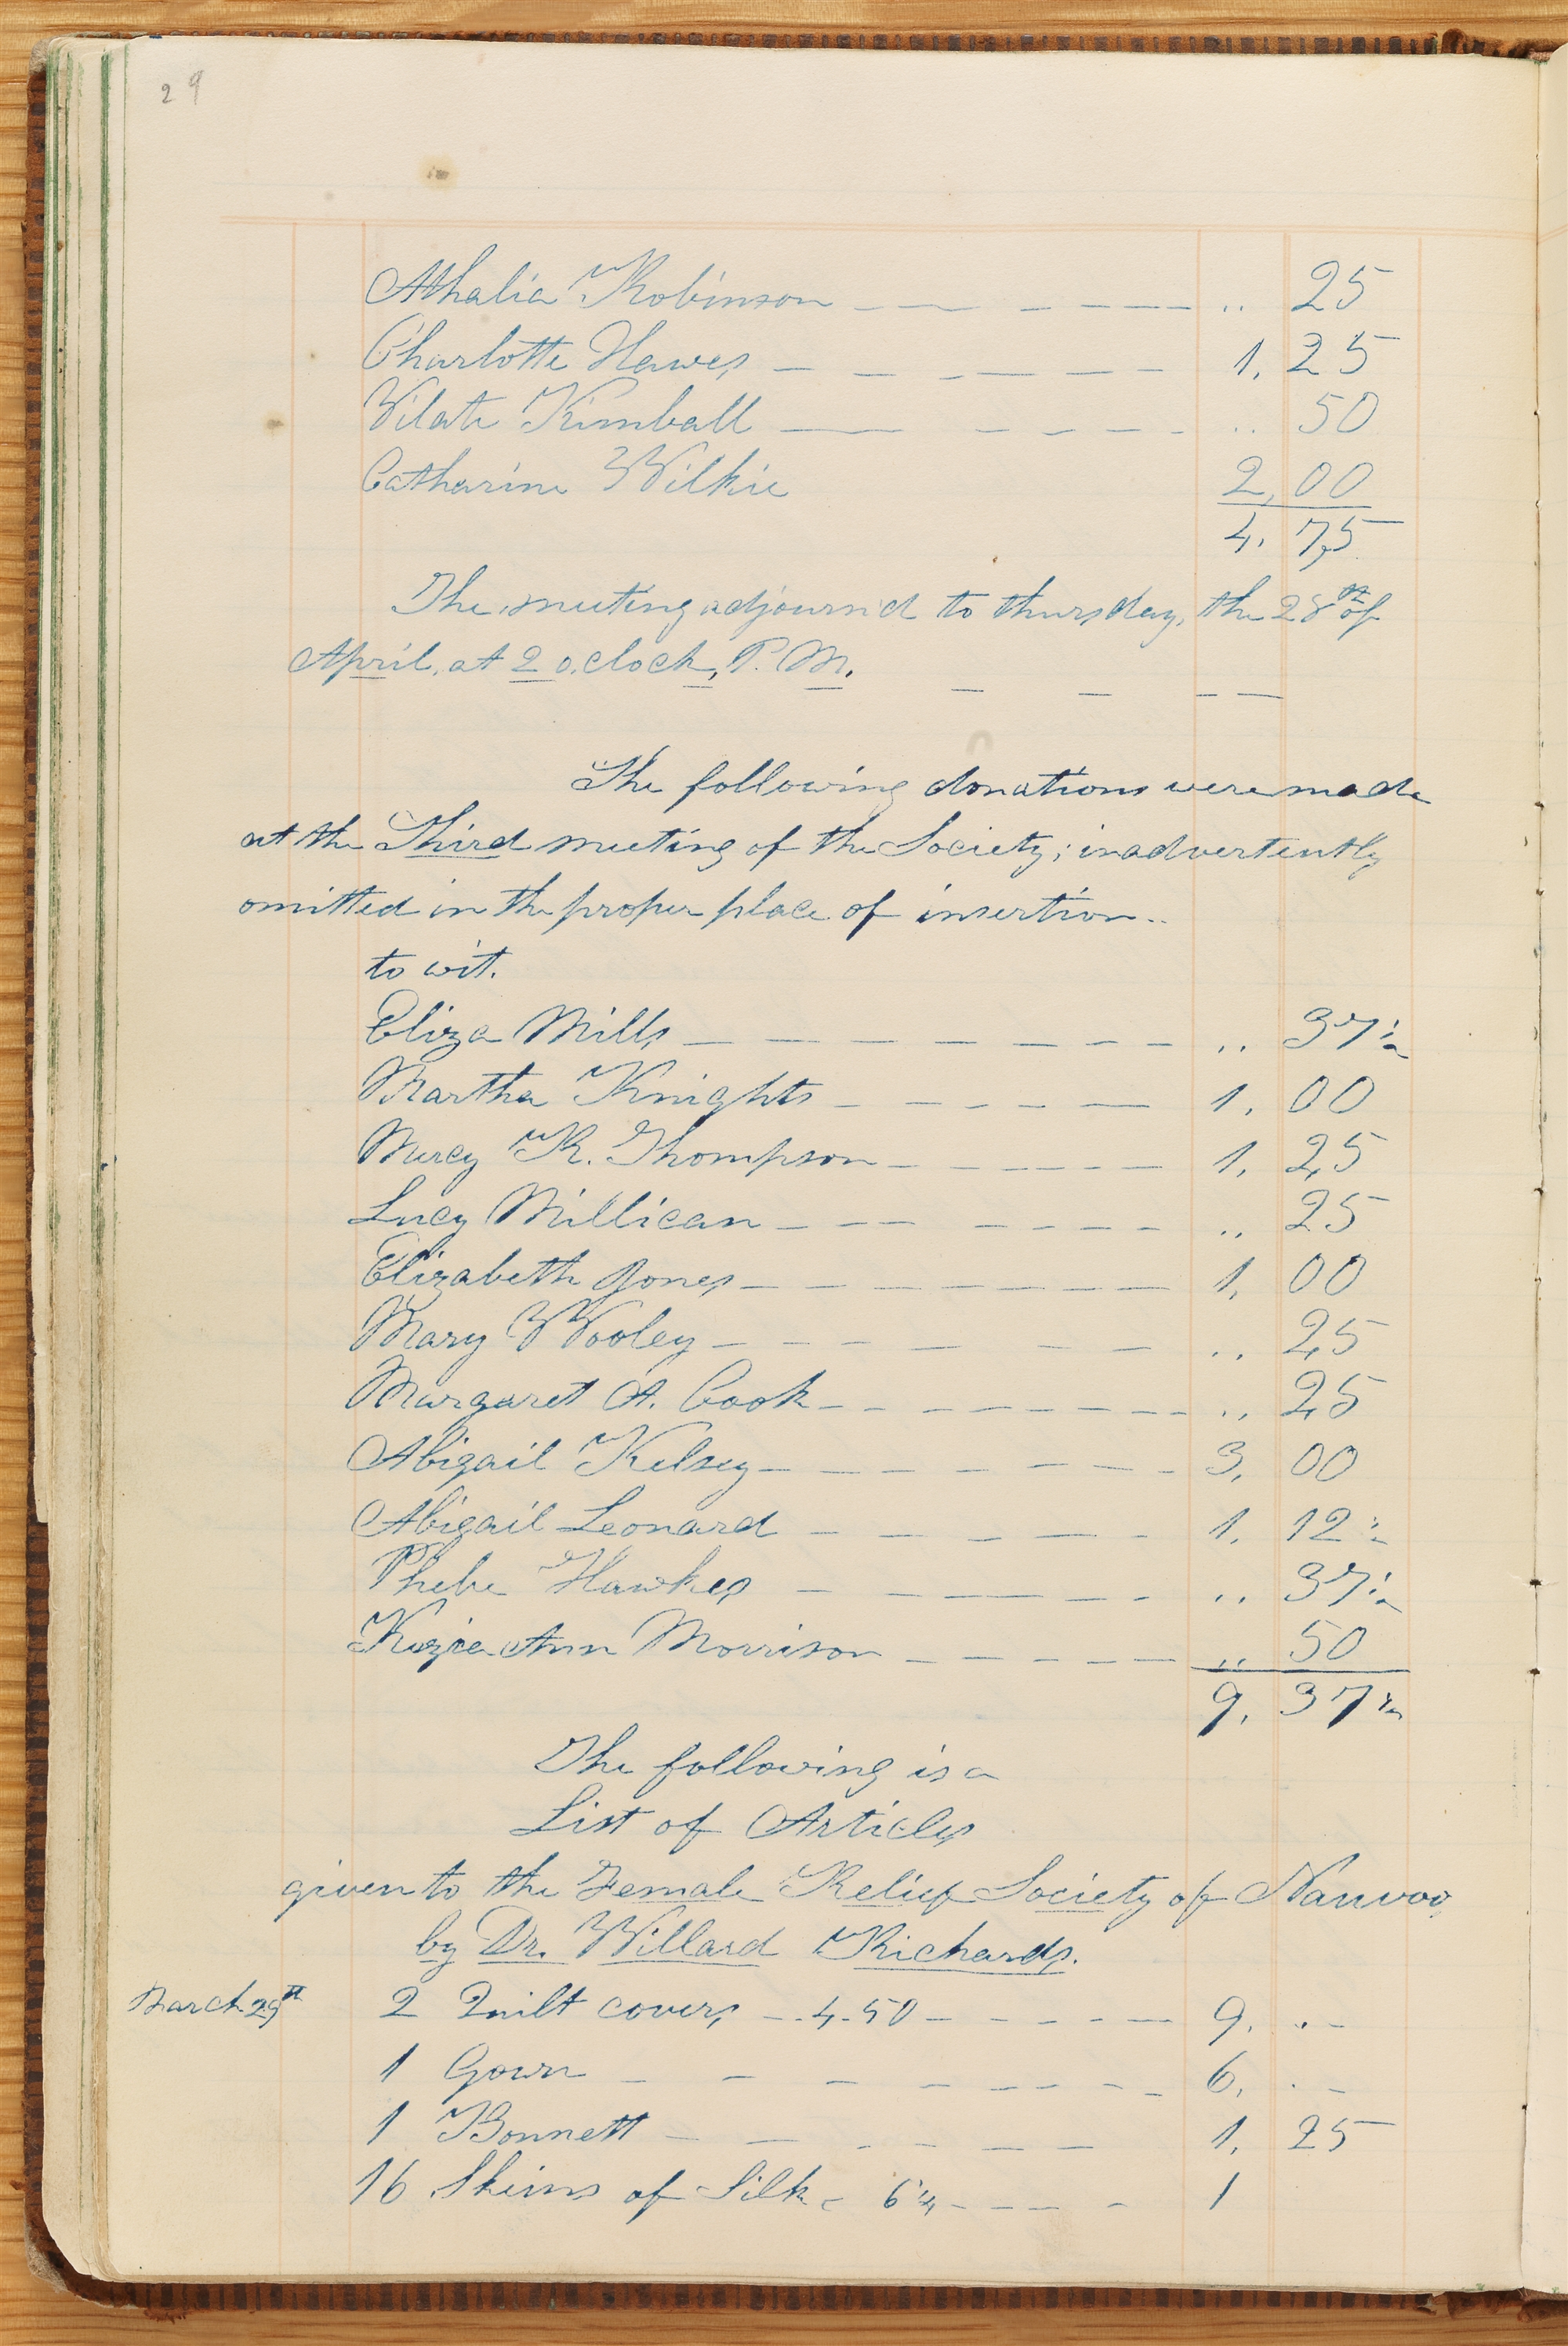 29
Athalia Robinson — — — — — — .. 25
Charlotte Hawes — — — — — — — 1, 25
Vilate Kimball — — — — — — — .. 50
Catharine Wilkie 2,00
4, 75
The meeting adjourn'd to thursday, the 28th of
April, at 2 o,clock, P. M. — — — —
The following donations were made
at the Third meeting of the Society; inadvertently
omitted in the proper place of insertion..
to wit.
Eliza Mills — — — — — — — — — .. 37½
Martha Knights — — — — — 1, 00
Mercy R. Thompson — — — — — — 1, 25
Lucy Millican — — — — — — — .. 25
Elizabeth Jones — — — — — — — — 1, 00
Mary Wooley — — — — — — .. 25
Margaret A. Cook — — — — — — — — .. 25
Abigail Kelsey — — — — — — — 3, 00
Abigail Leonard — — — — — — 1, 12½
Phebe Hawkes — — — — — — .. 37½
Kezia Ann Morrison — — — — — — .. 50
9, 37½
The following is a
List of Articles
given to the Female Relief Society of Nauvoo,
by Dr. Willard Richards.
March 29th 2 Quilt covers — 4.50 — — — — — 9. .. —
1 Gown — — — — — — — — 6, . —
1 Bonnett — — — — — — — 1, 25
16 Skeins of Silk — 6¼ — — — — 1